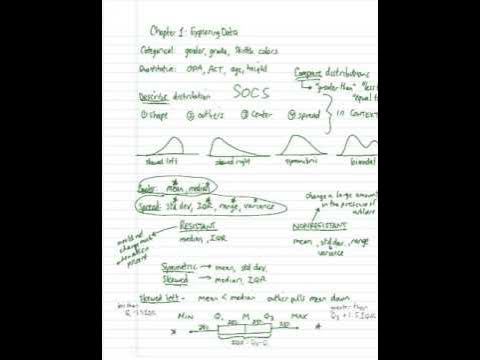 Chapter 1: Exploring Data
Categorical: gender, grade, Skittle colors
Quantitative: GPA, ACT, age, height
Compare distributions
"greater than" "less
"equal to
Describe distribution SOCS
① shape ② outliers ③ center ④ spread
in CONTEXT
skewed left skewed right symmetric bimodal
Center: mean, median
Spread: std dev, IQR, range, variance
RESISTANT
median, IQR
would not
change much
when outlier is
present
NONRESISTANT
mean, std dev, range
variance
change a large amount
in the presence of
outliers
Symmetric → mean, std dev.
Skewed → median, IQR
Skewed left - mean < median outlier pulls mean down
less than
Q₁-1.5IQR
MIN Q₁ M Q₃ MAX
greater than
Q₃ + 1.5 IQR
25% 25% 25% 25%
IQR = Q₃-Q₁